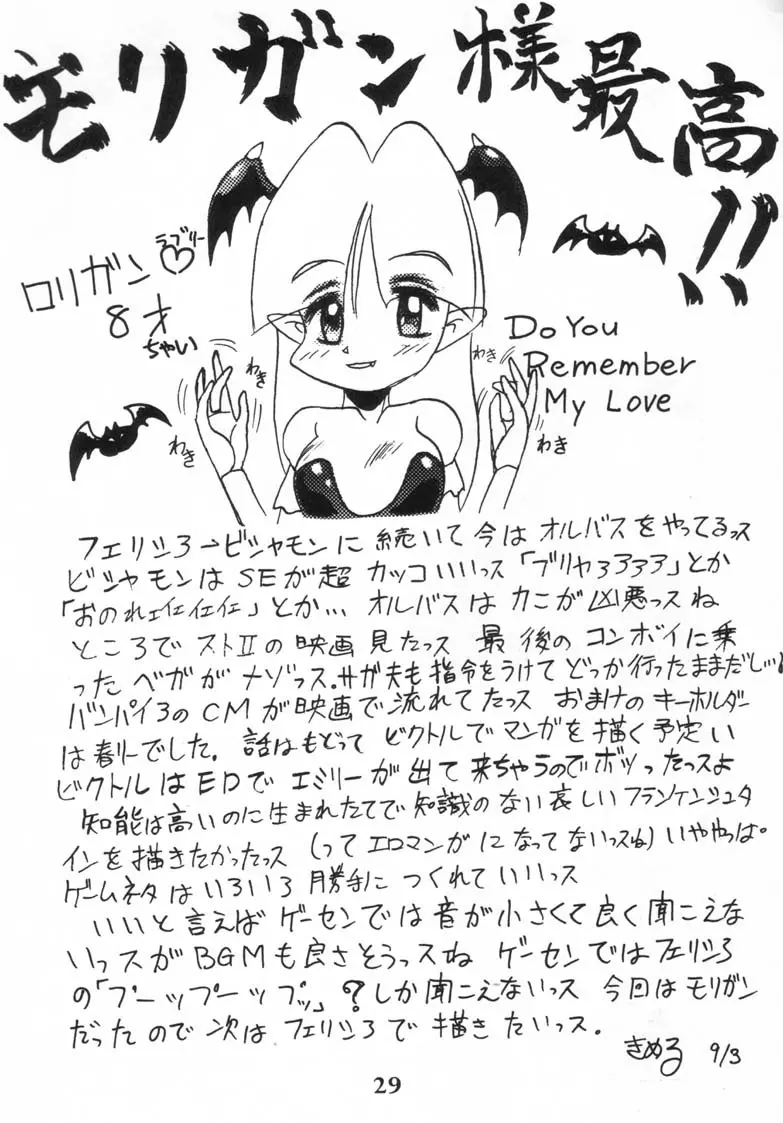 モリガン様最高!!
ラブリー
ロリガン♡
8才
ちゃい
わき
わき
わき
わき
Do You
Remember
My Love
フェリシ3→ビシャモンに続いて今はオルバスをやってるっス
ビシャモンはSEが超カッコいいっス「ブリャ3333」とか
「おのれェィェィェィ」とか…オルバスはカニが凶悪っスね
ところでストⅡの映画見たっス 最後のコンボイに乗
ったベガがナゾっス。サガ夫も指令をうけてどっか行ったままだしッ
バンパイ3のCMが映画で流れてたっス おまけのキーホルダー
は春りーでした。話はもどって ビクトルでマンガを描く予定い
ビクトルはEDでエミリーが出て来ちゃうのでボツったっスよ
知能は高いのに生まれたてで知識のない哀しいフランケンシュタ
インを描きたかったっス(ってエロマンガになってないっスね)いややっは。
ゲームネタはいろいろ勝手につくれていいっス
いいと言えばゲーセンでは音が小さくて良く聞こえな
いっスがBGMも良さそうっスね ゲーセンではフェリシ3
の「プーップーップッ」?しか聞こえないっス 今回はモリガン
だったので次はフェリシ3で描きたいっス。
きめる 9/3
29